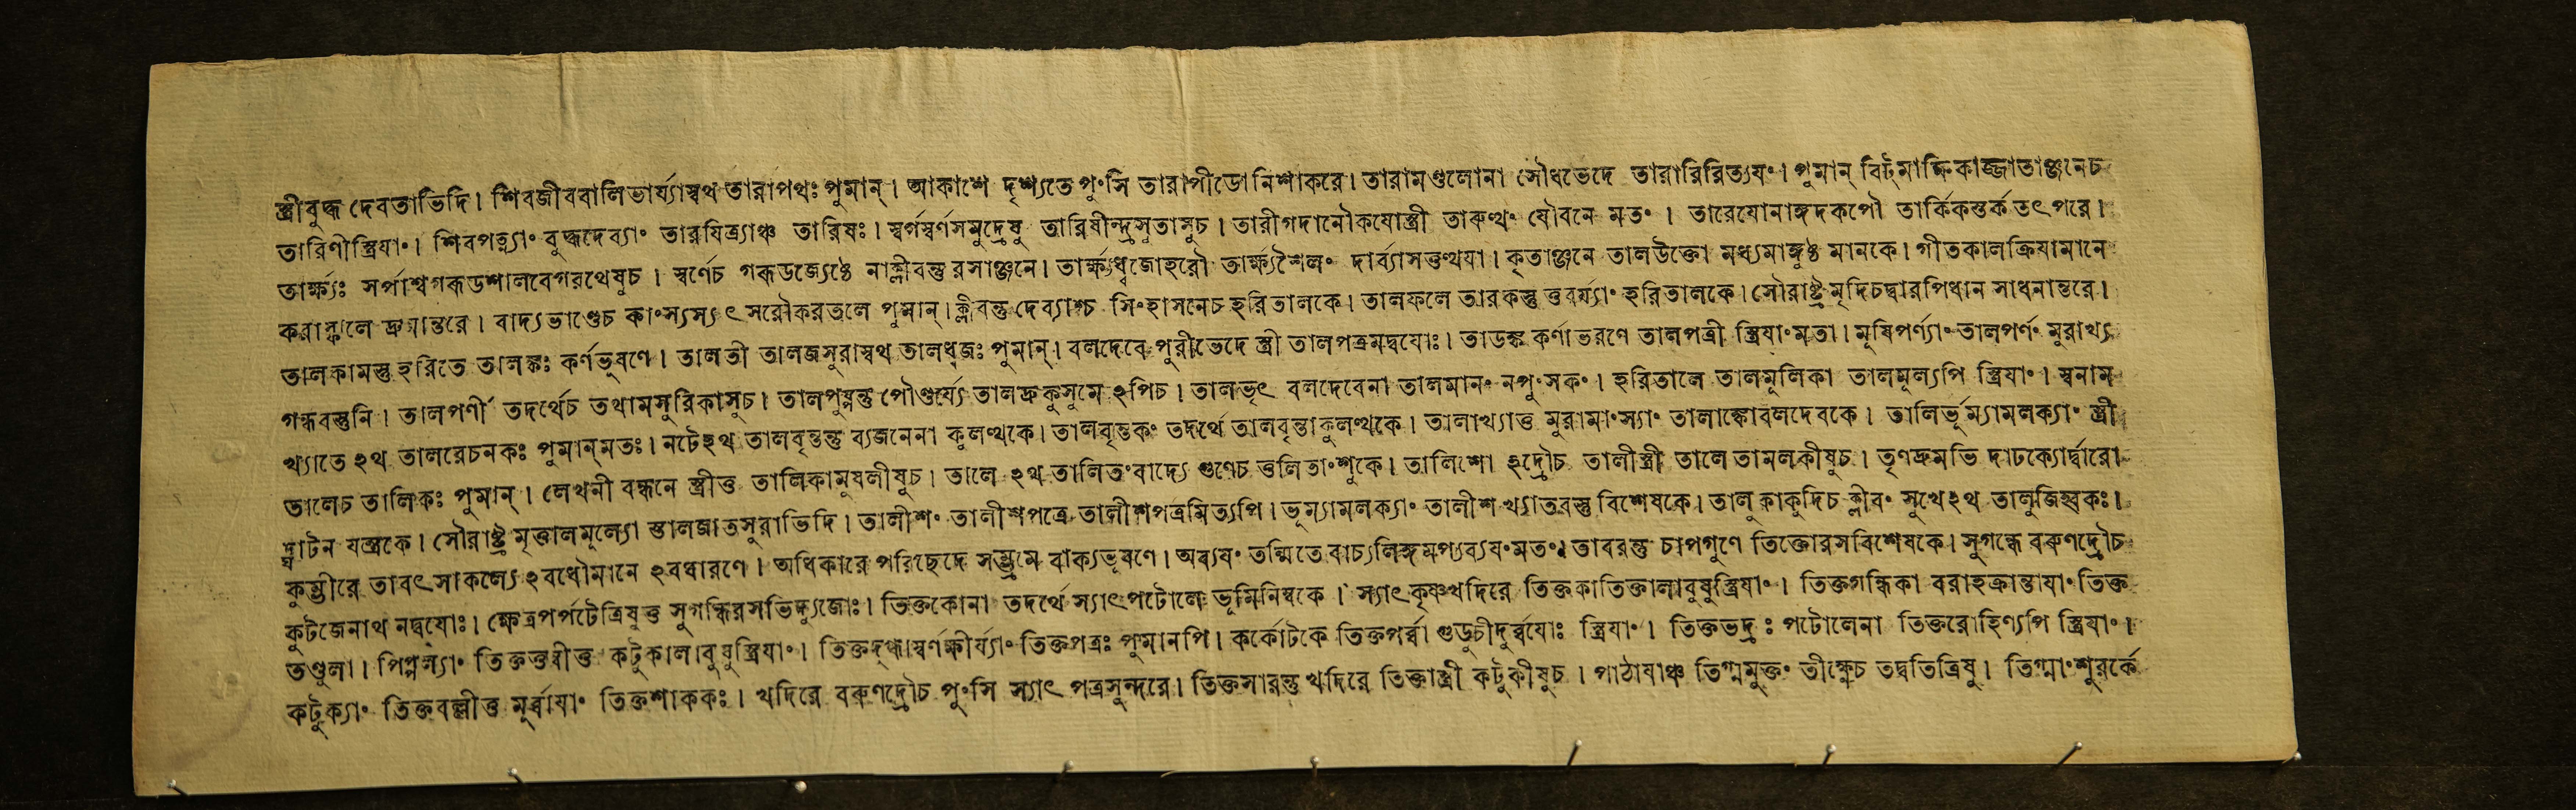 স্ত্রীবুদ্ধ দেবতাভিদি। শিবজীববালিভার্য্যাস্বথ তারাপথঃ পুমান্। আকাশে দৃশ্যতে পুংসি তারাপীডোনিশাকরে। তারামণ্ডলোনা সৌধভেদে তারারিরিত্যযং। পুমান্ বিট্মাক্ষিকাজ্জাতাঞ্জনেচ
তারিণীস্ত্রিযাং। শিবপত্ন্যাং বুদ্ধদেব্যাং তারযিত্র্যাঞ্চ তারিষঃ। স্বর্গস্বর্ণসমুদ্রেষু তারিষীন্দ্রসুতাসুচ। তারীগদানৌকযোস্ত্রী তারুণ্যং যৌবনে মতং। তারেযোনাঙ্গদকপৌ তার্কিকস্তর্কতৎপরে।
তার্ক্ষ্যঃ সর্পাশ্বগরুডশালবেগরথেষুচ। স্বর্ণেচ গরুডজ্যেষ্ঠে নাক্লীবন্তু রসাঞ্জনে। তার্ক্ষ্যধ্বজোহরৌ তার্ক্ষ্যশৈলং দার্ব্যাসত্তুত্থযা। কৃতাঞ্জনে তালউক্তো মধ্যমাঙ্গুষ্ঠ মানকে। গীতকালক্রিযামানে
করাস্ফালে দ্রুমান্তরে। বাদ্যভাণ্ডেচ কাংস্যস্যৎসরৌকরতলে পুমান্। ক্লীবন্তু দেব্যাশ্চ সিংহাসনেচ হরিতালকে। তালফলে তারকন্তু ত্তবর্য্যাং হরিতালকে। সৌরাষ্ট্রমৃদিচদ্বারপিধান সাধনান্তরে।
তালকামস্তু হরিতে তালঙ্কঃ কর্ণভূষণে। তালতী তালজসুরাস্বথ তালধ্বজঃ পুমান্। বলদেবে পুরীভেদে স্ত্রী তালপত্রমদ্বযোঃ। তাডঙ্ক কর্ণাভরণে তালপত্রী স্ত্রিযাংমতা। মূষিপর্ণ্যাং তালপর্ণং মুরাখ্য
গন্ধবস্তুনি। তালপর্ণী তদর্থেচ তথামসুরিকাসুচ। তালপুষ্পন্তু পৌণ্ডর্য্যে তালদ্রুকুসুমে ঽপিচ। তালভৃৎ বলদেবেনা তালমানং নপুংসকং। হরিতালে তালমূলিকা তালমূল্যপি স্ত্রিযাং। স্বনাম
খ্যাতে ঽথ তালরেচনকঃ পুমান্মতঃ। নটেঽথ তালবৃন্তন্তু ব্যজনেনা কুলত্থকে। তালবৃন্তকং তদর্থে তালবৃন্তাকুলত্থকে। তালাখ্যাত্ত মুরামাংস্যাং তালাঙ্কোবলদেবকে। তালির্ভূম্যামলক্যাং স্ত্রী
তালেচ তালিকঃ পুমান্। লেখনী বন্ধনে স্ত্রীত্ত তালিকামুষলীষুচ। তালে ঽথ তালিতংবাদ্যে গুণেচ ত্তলিতাংশুকে। তালিশো ঽদ্রৌচ তালীস্ত্রী তালে তামলকীষুচ। তৃণদ্রুমভি দাঢক্যোর্দ্বারো
দ্ঘাটন যন্ত্রকে। সৌরাষ্ট্রমৃত্তালমূল্যো স্তালজাতসুরাভিদি। তালীশং তালীশপত্রে তালীশপত্রমিত্যপি। ভূম্যামলক্যাং তালীশ খ্যাতবস্তু বিশেষকে। তালু কাকুদিচ ক্লীবং সুখেঽথ তালুজিহ্বকঃ।
কুম্ভীরে তাবৎসাকল্যে ঽবধৌমানে ঽবধারণে। অধিকারে পরিছেদে সম্ভ্রমে বাক্যভূষণে। অব্যযং তন্মিতে বাচ্যলিঙ্গমপ্যব্যযংমতং। তাবরন্তু চাপগুণে তিক্তোরসবিশেষকে। সুগন্ধে বরুণদ্রৌচ
কুটজেনাথ নদ্বযোঃ। ক্ষেত্রপর্পটেত্রিষুত্ত সুগন্ধিরসভিদ্যুজোঃ। তিক্তকোনা তদর্থে স্যাৎপটোলে ভূমিনিম্বকে। স্যাৎকৃষ্ণখদিরে তিক্তকাতিক্তালাবুষুস্ত্রিযাং। তিক্তগন্ধিকা বরাহক্রান্তাযাং তিক্ত
তণ্ডুলা। পিপ্পল্যাং তিক্তত্তম্বীত্ত কটুকালাবুষুস্ত্রিযাং। তিক্তদুগ্ধাস্বর্ণক্ষীর্য্যাং তিক্তপত্রঃ পুমানপি। কর্কোটকে তিক্তপর্ব্বা গুডুচীদুর্ব্বযোঃ স্ত্রিযাং। তিক্তভদ্রঃ পটোলেনা তিক্তরোহিণ্যপি স্ত্রিযাং।
কটুক্যাং তিক্তবল্লীত্ত মূর্ব্বাযাং তিক্তশাককঃ। খদিরে বরুণদ্রৌচ পুংসি স্যাৎ পত্রসুন্দরে। তিক্তসারন্তু খদিরে তিক্তাস্ত্রী কটুকীষুচ। পাঠাযাঞ্চ তিগ্মমুক্তং তীক্ষ্ণেচ তদ্বতিত্রিষু। তিগ্মাংশুরর্কে